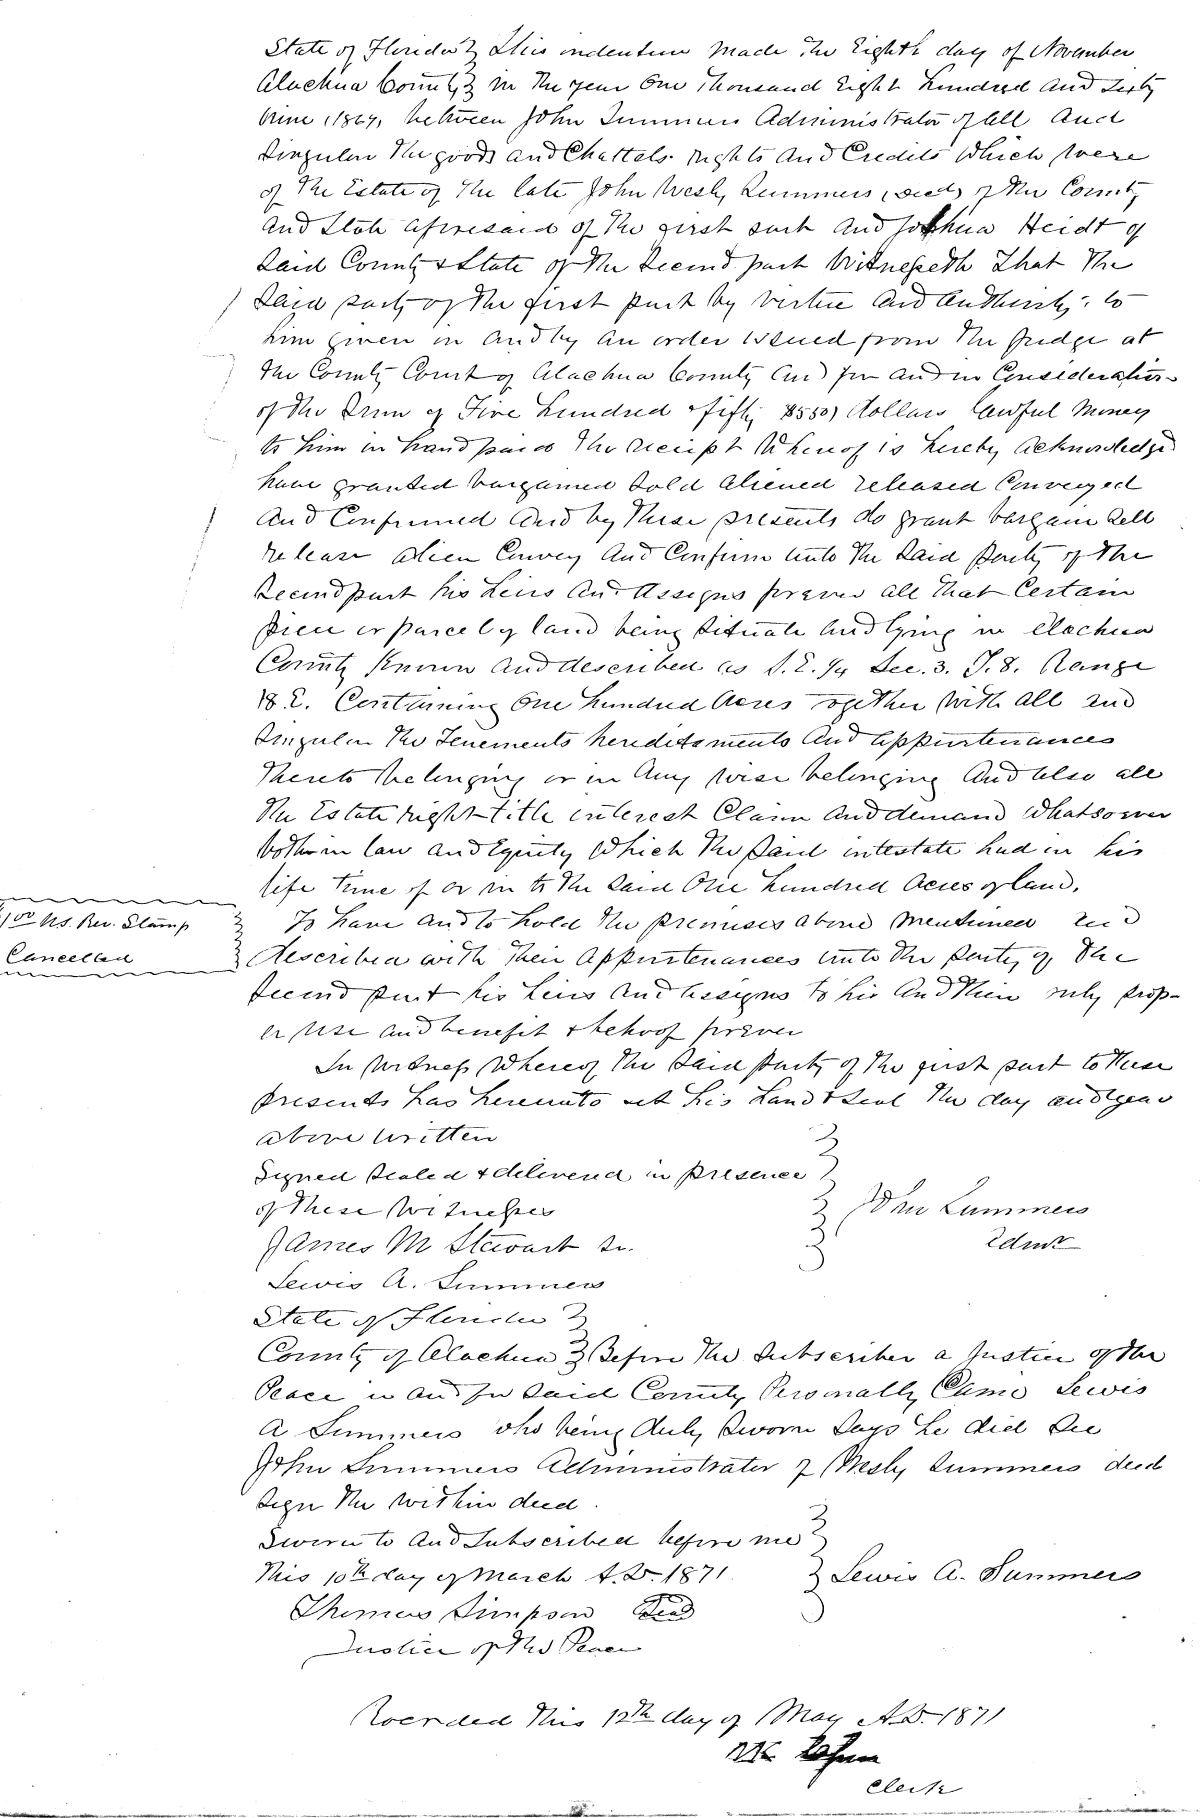 State of Florida } This indenture made the Eighth day of November
Alachua County } in the year One Thousand Eight hundred and Sixty
nine, 1869, between John Summers Administrator of all and
Singular the goods and Chattels rights and Credits which were
of the Estate of the late John Wesly Summers (decd) of the County
and State aforesaid of the first part and Joshua Heidt of
Said County & State of the Second part Witnesseth That the
Said party of the first part by virtue and authority to
him given in and by an order issued from the Judge at
the County Court of Alachua County and for and in Consideration
of the Sum of Five hundred & fifty ($550) dollars lawful money
to him in hand paid the receipt Whereof is hereby acknowledged
have granted bargained Sold aliened released Conveyed
and Confirmed and by these presents do grant bargain Sell
release alien Convey and Confirm unto the Said party of the
Second part his heirs and assigns forever all that Certain
piece or parcel of land being Situate and lying in Alachua
County Known and described as S.E. 1/4 Sec. 3. T. 8. Range
18. E. Containing One hundred acres together with all and
Singular the Tenements hereditaments and appurtenances
thereto belonging or in any wise belonging and also all
the Estate right title interest Claim and demand whatsoever
both in law and Equity which the Said intestate had in his
life time of or in to the Said One hundred acres of land.
$1.00 U.S. Rev. Stamp
Cancelled
To have and to hold the premises above mentioned and
described with their appurtenances unto the party of the
Second part his heirs and assigns to his and their only prop-
er use and benefit & behoof forever
In Witness Whereof the Said party of the first part to these
presents has hereunto set his hand & seal the day and year
above written
Signed Sealed & delivered in presence
of these Witnesses
John Summers
Admr
James M Stewart Sr.
Lewis A. Summers
State of Florida }
County of Alachua } Before the Subscriber a Justice of the
Peace in and for Said County Personally Came Lewis
A Summers who being duly Sworn Says he did See
John Summers Administrator of Wesly Summers decd
Sign the within deed.
Sworn to and Subscribed before me
This 10th day of March A.D. 1871
Lewis A. Summers
Thomas Simpson Seal
Justice of the Peace
Recorded this 12th day of May A.D. 1871
Clerk